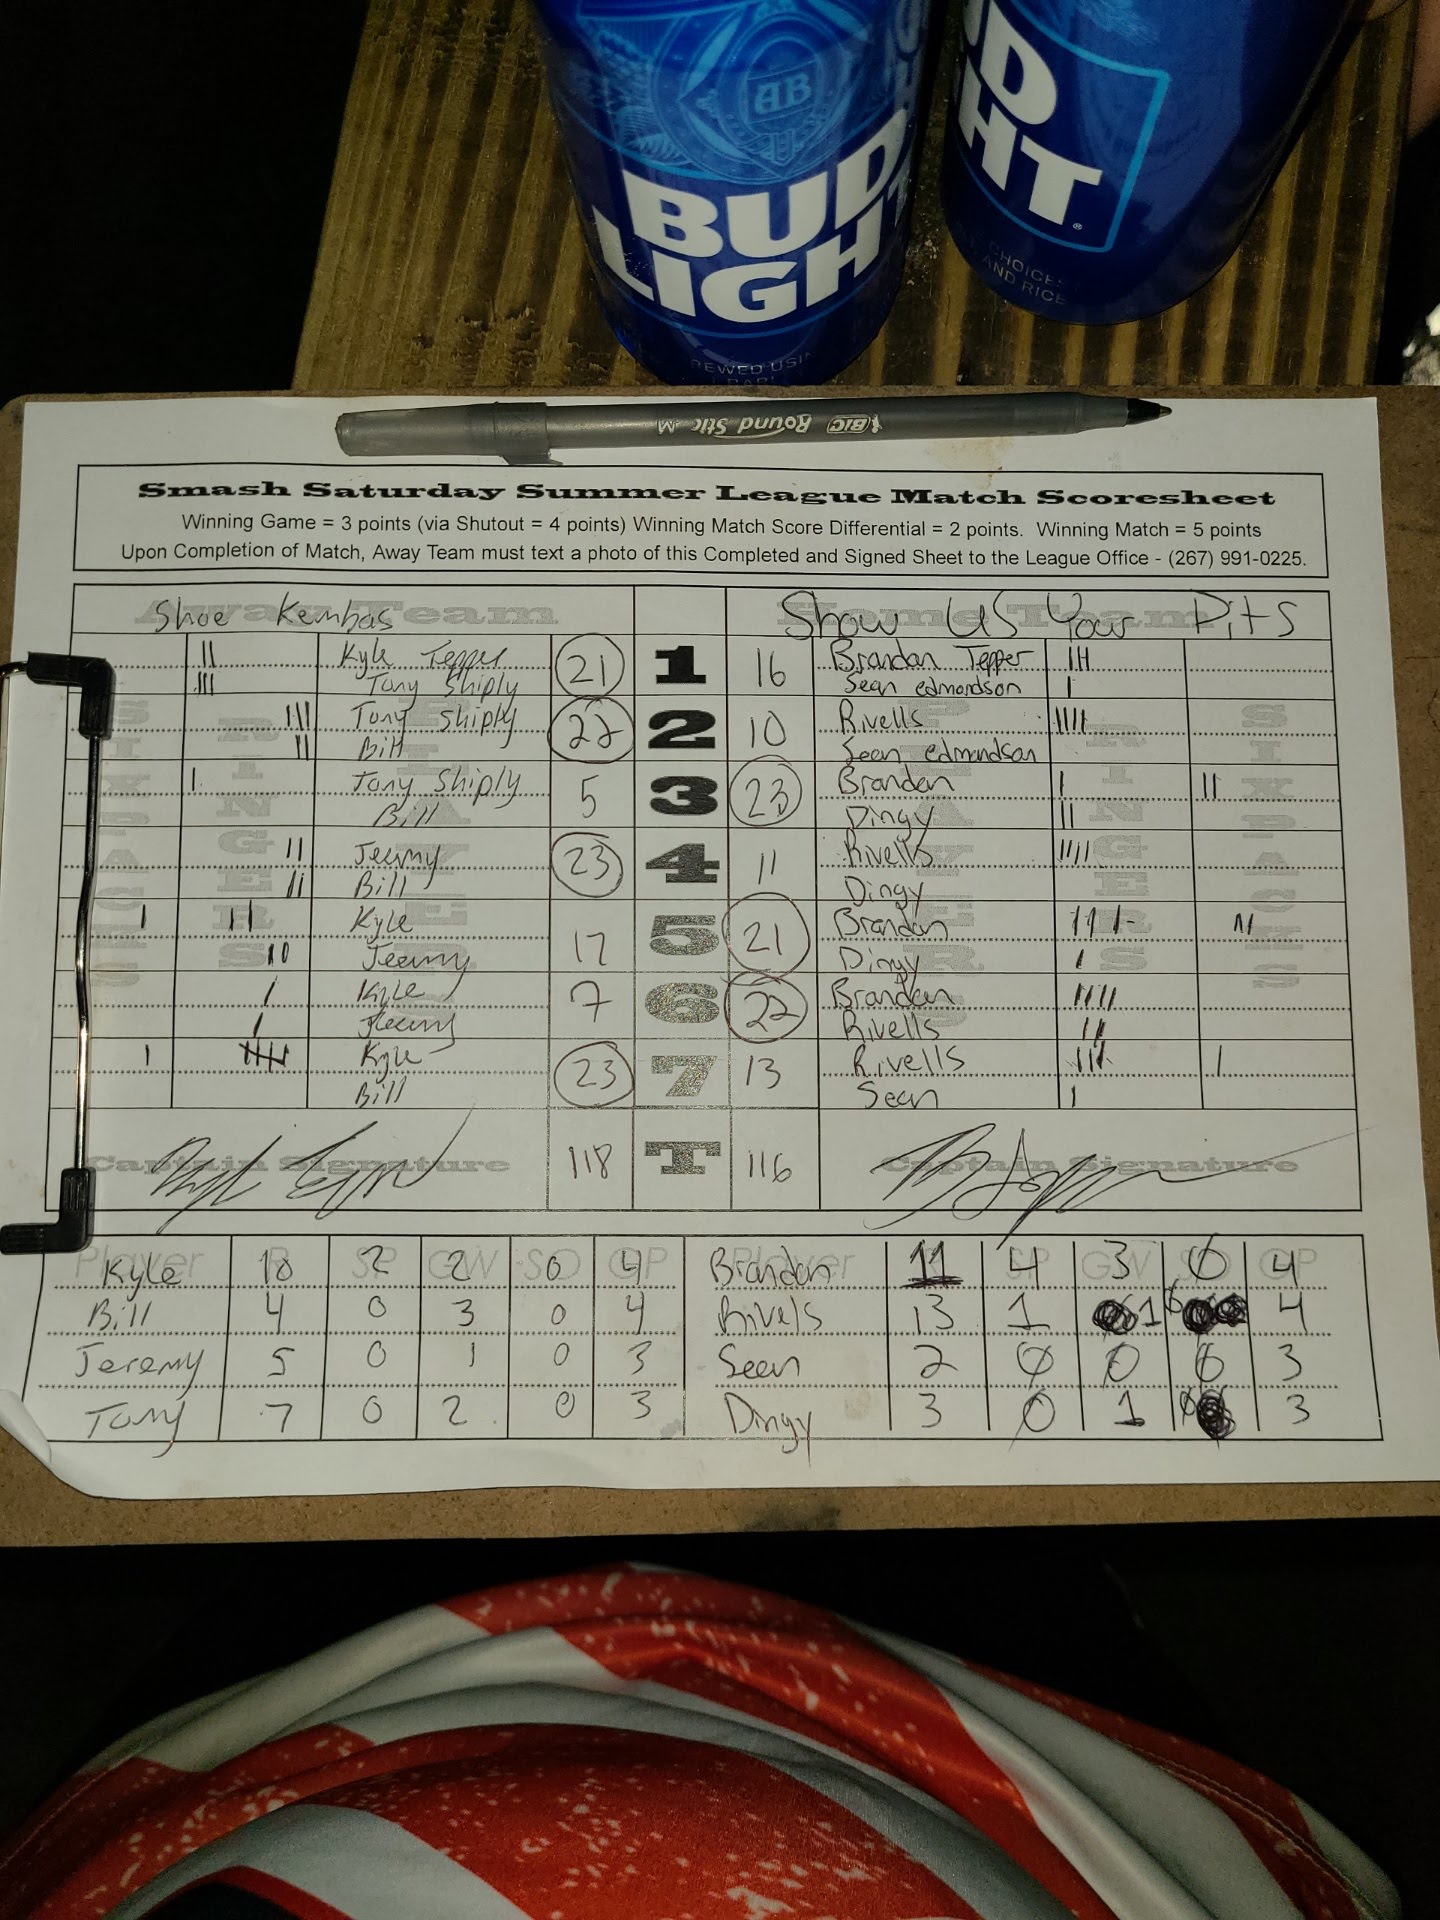 AB
BUD
LIGHT
UD
HT
CHOICES
AND RICE
BREWED USIN
BIC Round Stic M
Smash Saturday Summer League Match Scoresheet
Winning Game = 3 points (via Shutout = 4 points) Winning Match Score Differential = 2 points. Winning Match = 5 points
Upon Completion of Match, Away Team must text a photo of this Completed and Signed Sheet to the League Office - (267) 991-0225.
Away Team Home Team
Shoe Kembas Show US Your Pits
SIXPACKS RINGERS PLAYERS PLAYERS RINGERS SIXPACKS
|| Kyle Tepper 21 1 16 Brandan Tepper |||
||| Tony Shiply Sean edmondson |
||| Tony Shiply 22 2 10 Rivells ||||
|| Bill Sean edmondson
| Tony Shiply 5 3 23 Brandan | ||
Bill Dingy ||
|| Jeremy 23 4 11 Rivells ||||
|| Bill Dingy
| || Kyle 17 5 21 Brandan ||| ||
|| Jeremy Dingy |
| Kyle 7 6 22 Brandan ||||
| Jeremy Rivells ||
| |||| Kyle 23 7 13 Rivells ||| |
Bill Sean |
Captain Signature 118 T 116 Captain Signature
Player R SP GW SO GP Player SP GW SO GP
Kyle 10 2 2 0 4 Brandan 11 4 3 0 4
Bill 4 0 3 0 4 Rivels 13 1 1 0 4
Jeremy 5 0 1 0 3 Seen 2 0 0 0 3
Tony 7 0 2 0 3 Dingy 3 0 1 0 3